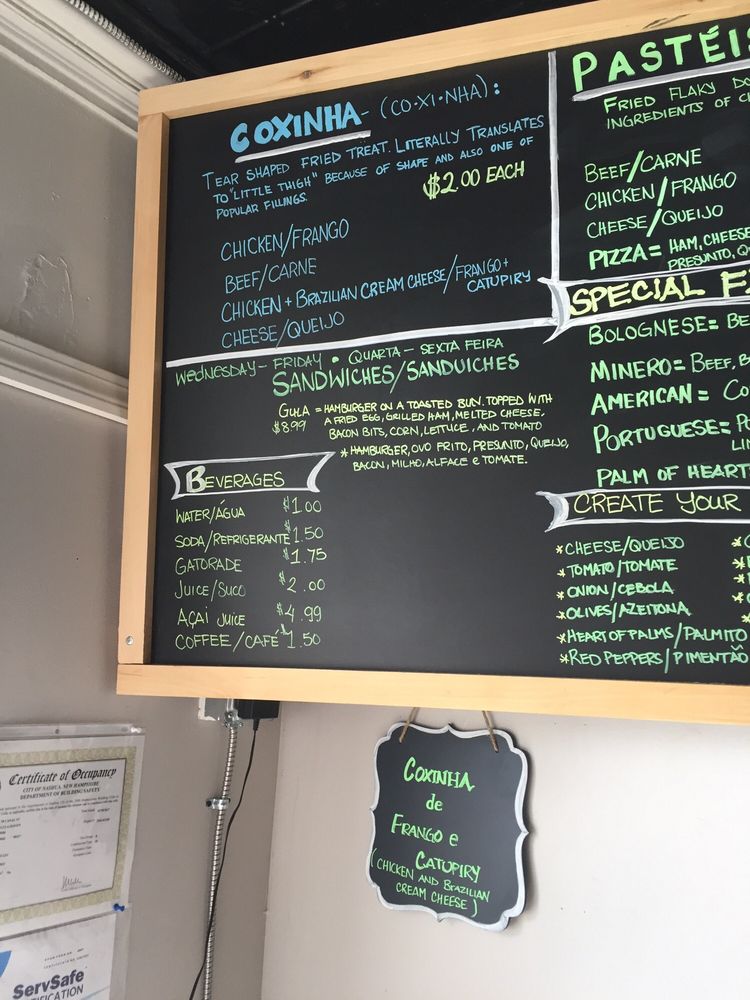 COXINHA - (CO·XI·NHA):
TEAR SHAPED FRIED TREAT. LITERALLY TRANSLATES
TO "LITTLE THIGH" BECAUSE OF SHAPE AND ALSO ONE OF
POPULAR FILLINGS.
$2.00 EACH
CHICKEN/FRANGO
BEEF/CARNE
CHICKEN + BRAZILIAN CREAM CHEESE/FRANGO +
CATUPIRY
CHEESE/QUEIJO
WEDNESDAY - FRIDAY • QUARTA - SEXTA FEIRA
SANDWICHES/SANDUICHES
GULA = HAMBURGER ON A TOASTED BUN. TOPPED WITH
$8.99 A FRIED EGG, GRILLED HAM, MELTED CHEESE,
BACON BITS, CORN, LETTUCE, AND TOMATO
* HAMBURGER, OVO FRITO, PRESUNTO, QUEIJO,
BACON, MILHO, ALFACE e TOMATE.
BEVERAGES
WATER/ÁGUA $1.00
SODA/REFRIGERANTE $1.50
GATORADE $1.75
JUICE/SUCO $2.00
AÇAI JUICE $4.99
COFFEE/CAFÉ $1.50
PASTÉIS
FRIED FLAKY
INGREDIENTS OF
BEEF/CARNE
CHICKEN/FRANGO
CHEESE/QUEIJO
PIZZA = HAM, CHEESE
PRESUNTO,
SPECIAL
BOLOGNESE =
MINERO = BEEF,
AMERICAN =
PORTUGUESE =
PALM OF HEART
CREATE YOUR
* CHEESE/QUEIJO
* TOMATO/TOMATE
* ONION/CEBOLA
* OLIVES/AZEITONA
* HEART OF PALMS/PALMITO
* RED PEPPERS/PIMENTÃO
COXINHA
de
FRANGO e
CATUPIRY
(CHICKEN AND BRAZILIAN
CREAM CHEESE)
Certificate of Occupancy
CITY OF NASHUA, NEW HAMPSHIRE
DEPARTMENT OF BUILDING SAFETY
ServSafe